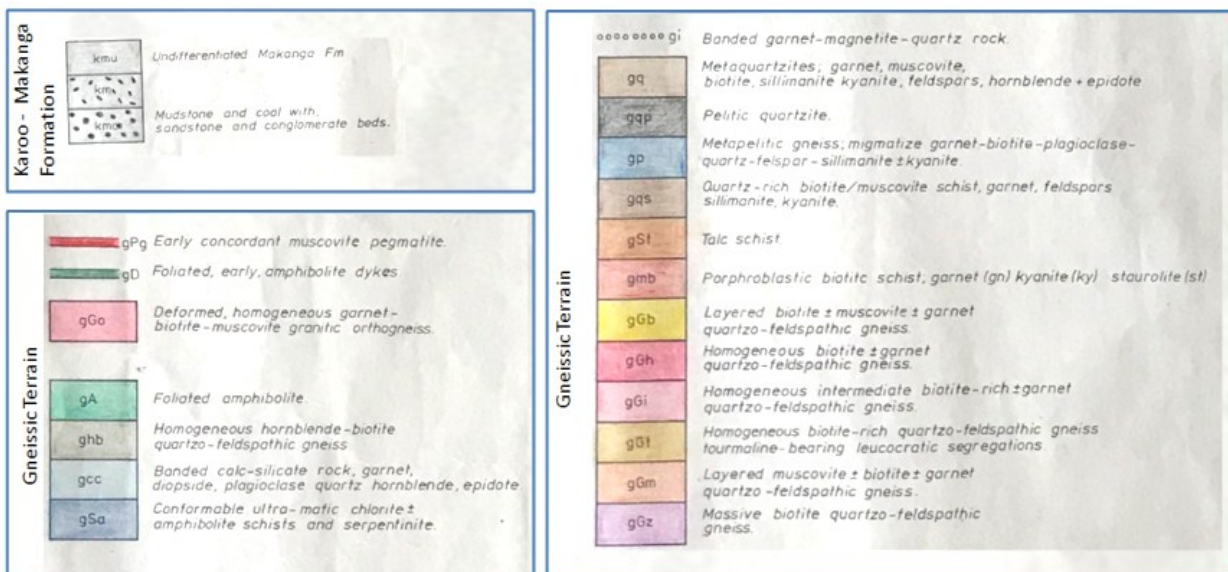 Karoo - Makanga
Formation
kmu
Undifferentiated Makanga Fm
km
kmc
Mudstone and coal with,
sandstone and conglomerate beds.
Gneissic Terrain
gPg Early concordant muscovite pegmatite.
gD Foliated, early, amphibolite dykes.
gGo
Deformed, homogeneous garnet-
biotite-muscovite granitic orthogneiss.
gA
Foliated amphibolite.
ghb
Homogeneous hornblende-biotite
quartzo-feldspathic gneiss
gcc
Banded calc-silicate rock, garnet,
diopside, plagioclase quartz hornblende, epidote
gSa
Conformable ultra-matic chlorite ±
amphibolite schists and serpentinite.
Gneissic Terrain
gi Banded garnet-magnetite-quartz rock.
gq
Metaquartzites; garnet, muscovite,
biotite, sillimanite kyanite, feldspars, hornblende + epidote
gqp
Pelitic quartzite.
gp
Metapelitic gneiss; migmatize garnet-biotite-plagioclase-
quartz-felspar-sillimanite ±kyanite.
gqs
Quartz-rich biotite/muscovite schist, garnet, feldspars
sillimanite, kyanite.
gSt
Talc schist.
gmb
Porphroblastic biotite schist, garnet (gn) kyanite (ky) staurolite (st)
gGb
Layered biotite ± muscovite ± garnet
quartzo-feldspathic gneiss.
gGh
Homogeneous biotite ±garnet
quartzo-feldspathic gneiss.
gGi
Homogeneous intermediate biotite-rich ±garnet
quartzo-feldspathic gneiss.
gGt
Homogeneous biotite-rich quartzo-feldspathic gneiss
tourmaline-bearing leucocratic segregations.
gGm
Layered muscovite ± biotite ± garnet
quartzo-feldspathic gneiss.
gGz
Massive biotite quartzo-feldspathic
gneiss.